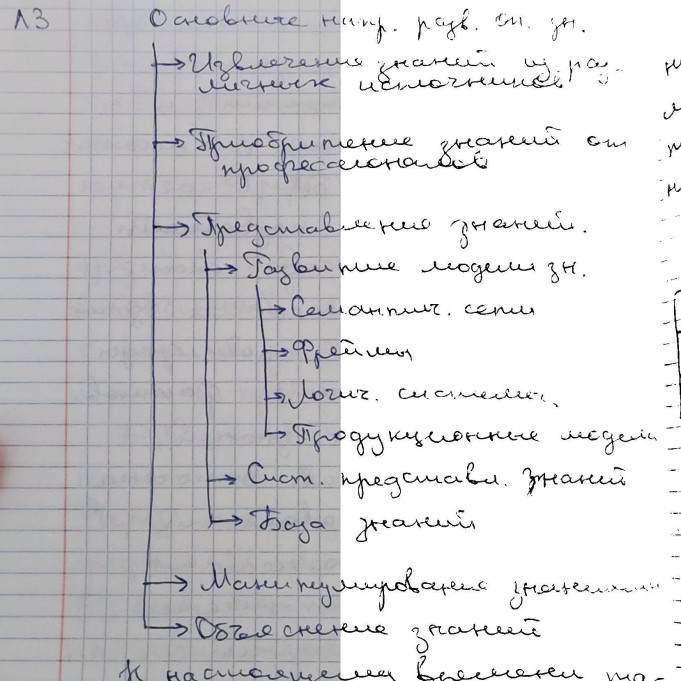 Л3
Основные напр. разв. сп. зн.
Извлечения знаний из раз-
личных источников
Приобритение знаний от
профессионалов
Представления знаний.
Развитие модели зн.
Семантич. сети
Фреймы
Логич. системы
Продукционные модели
Сист. представл. знаний
База знаний
Манипулирование знаниями
Объяснение знаний
К настоящему времени